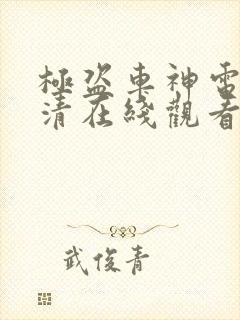 極盜車神電
清在綫觀看
武俊青